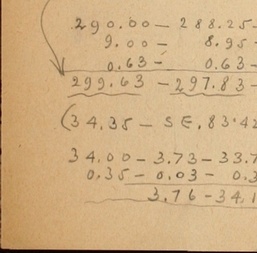 290.00 - 288.25-
9.00 - 8.95-
0.63 - 0.63-
299.63 - 297.83-
(34.35 - SE, 83.42
34.00 - 3.73 - 33.7
0.35 - 0.03 - 0.3
3.76 - 34.1